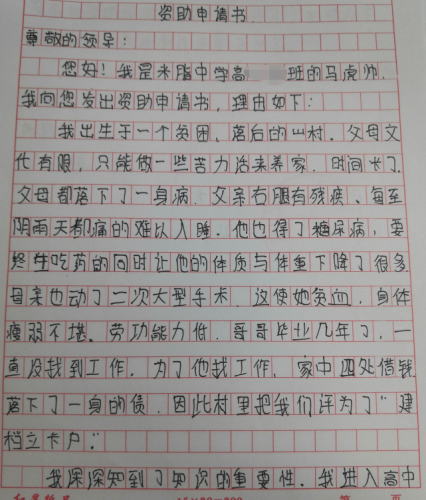 资助申请书
尊敬的领导：
您好！我是米脂中学高 班的马虎帅.
我向您发出资助申请书，理由如下：
我出生于一个贫困、落后的山村。父母文
化有限，只能做一些苦力活来养家.时间长了.
父母都落下了一身病.父亲右腿有残疾、每至
阴雨天都痛的难以入睡.他也得了糖尿病，要
终生吃药的同时让他的体质与体重下降了很多.
母亲也动了二次大型手术.这使她贫血，身体
瘦弱不堪。劳功能力低.哥哥毕业几年了，一
直没找到工作.为了他找工作.家中四处借钱
落下了一身的债.因此村里把我们评为了“建
档立卡户.”
我深深知到了知识的重要性.我进入高中